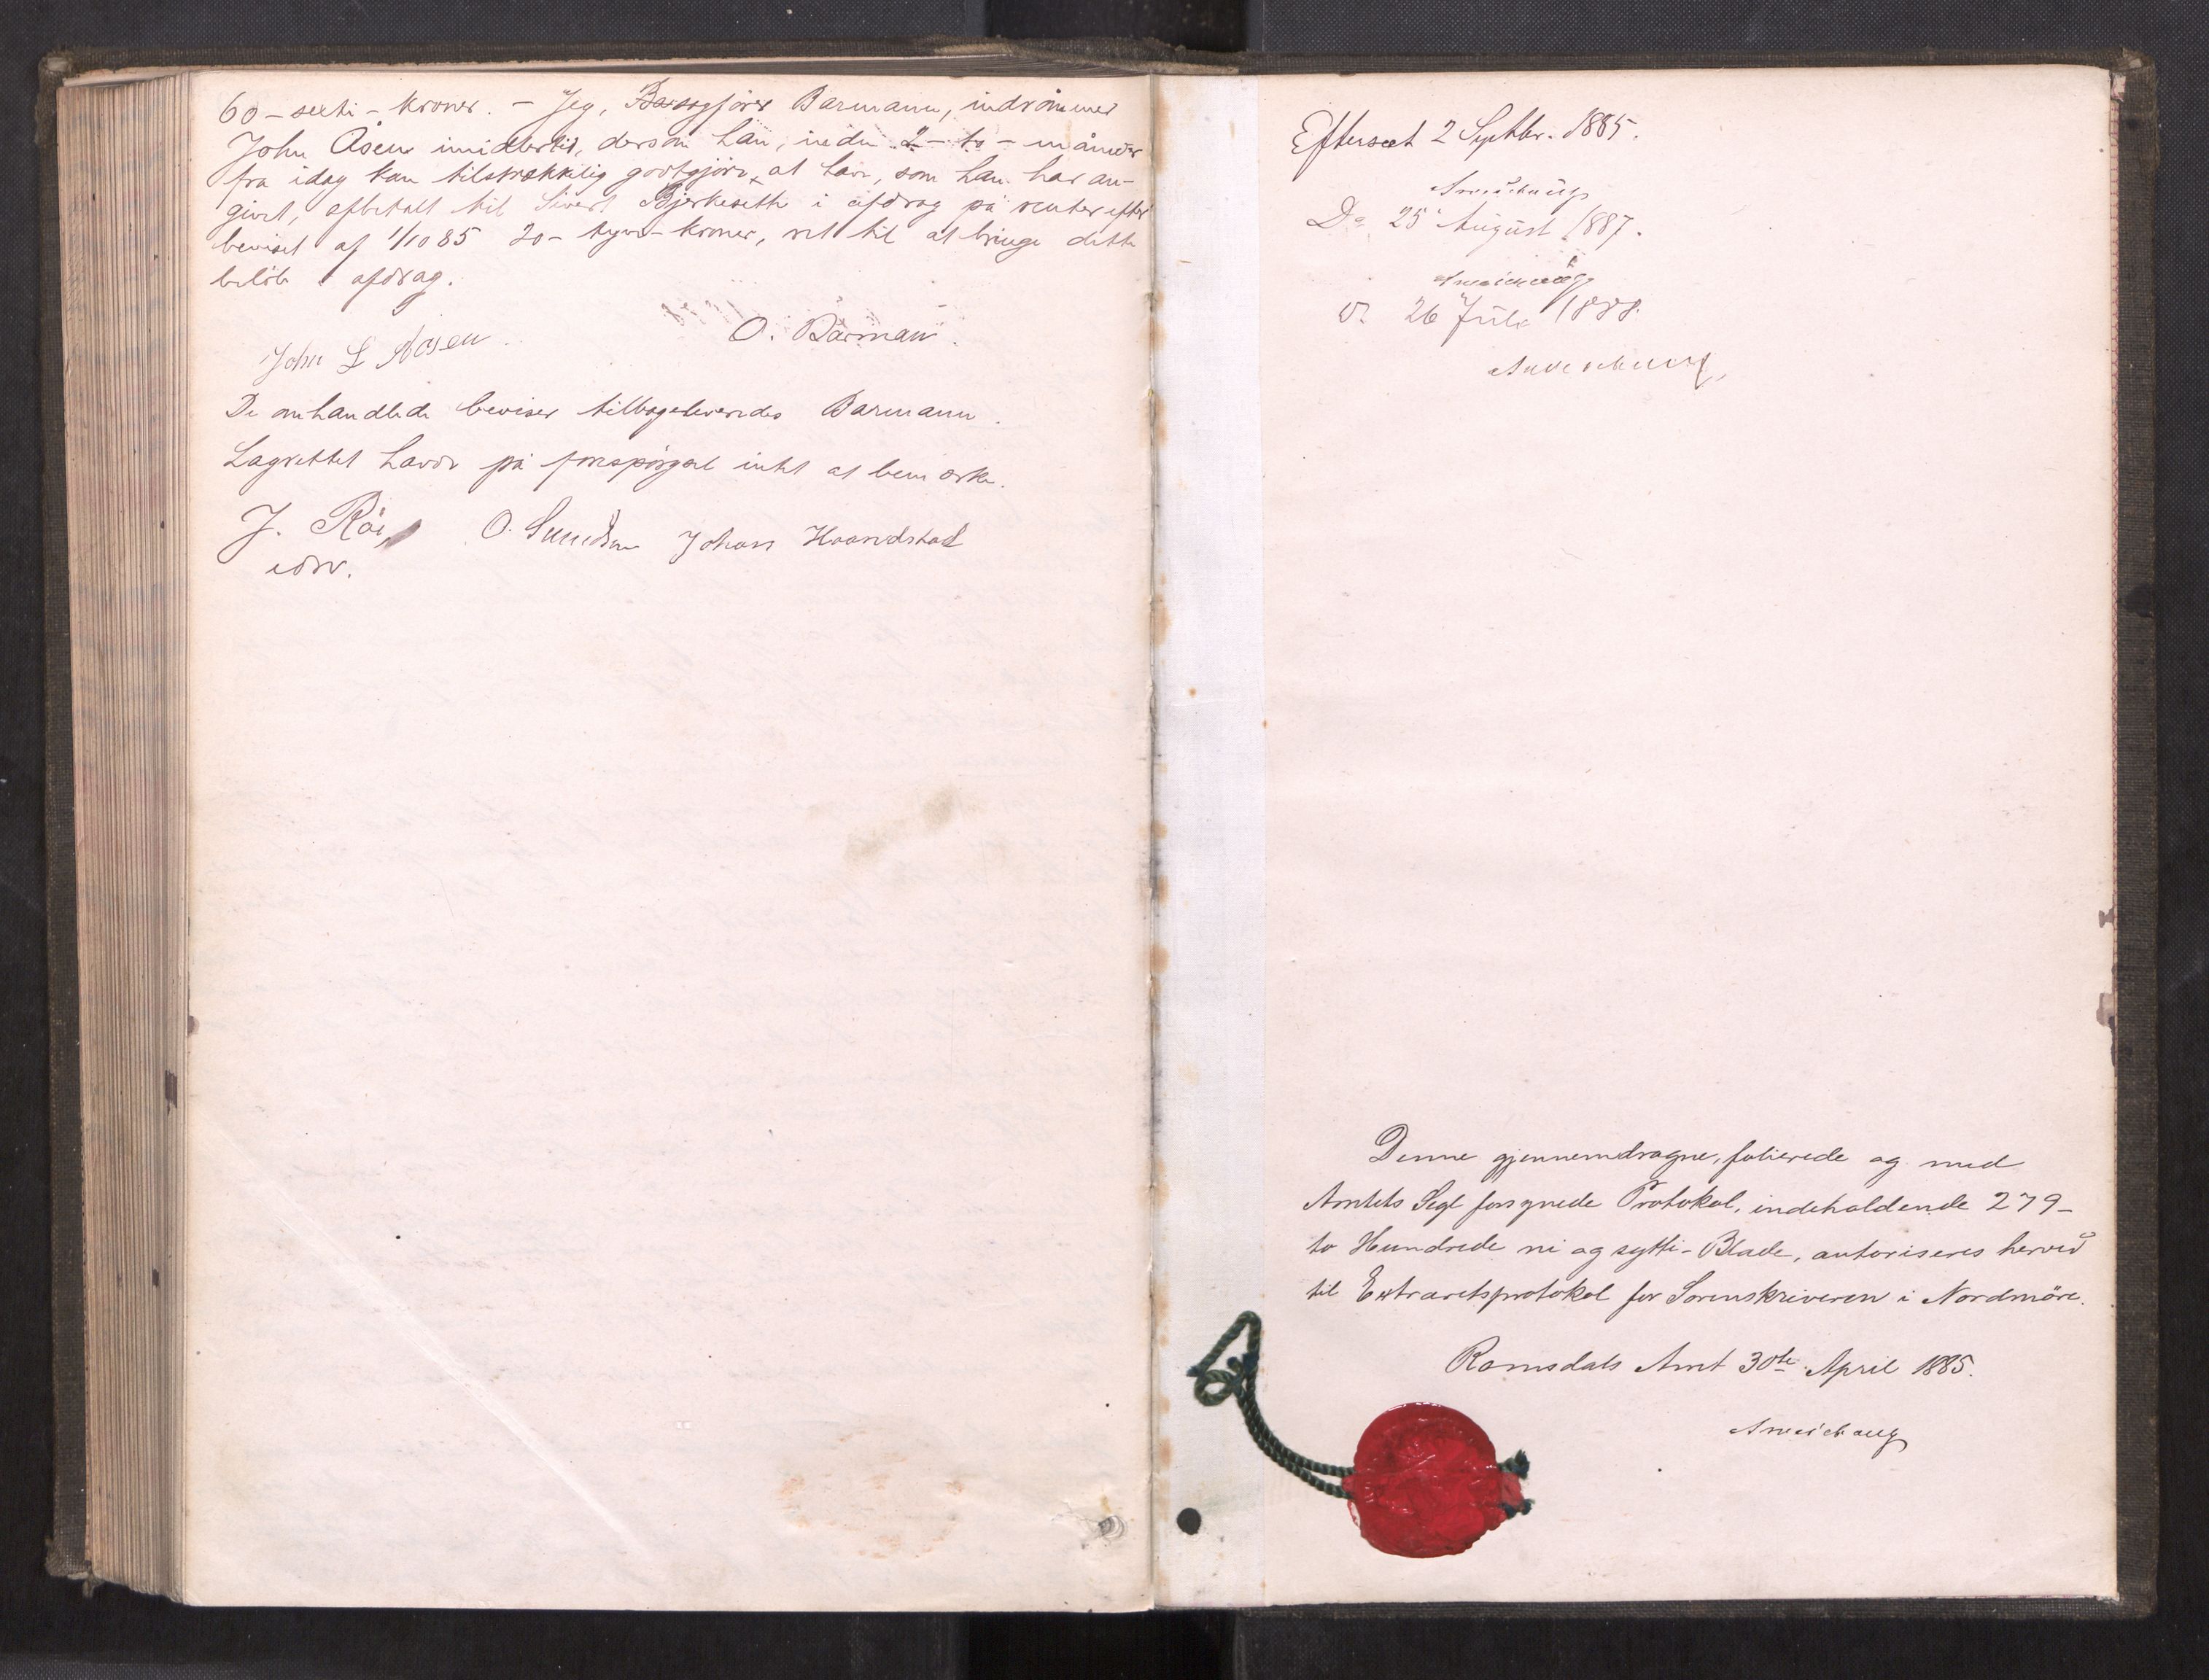 60 – sexti – kroner. – Jeg, Barmann, indrömmer
John Åsen imidlertid, dersom han, inden 2 – to – måneder
fra idag kan tilstrækkelig godtgjöre, at han, som han har an-
givet, afbetalt til Sivert Bjerkeseth i afdrag på renter efter
beviset af 1/10 85 20 – tyve – kroner, ret til at bringe dette
belöb i afdrag.
John L Aasen. O. Barmann.
De omhandlede beviser tilbageleveredes Barmann.
Lagrettet havde på forespörgsel intet at bemærke.
J. Röe, O. Sundsen Johan Haandstad
edsv.
Efterseet 2 Septbr. 1885.
Do 25 August 1887.
Do 26 Juli 1888.
Denne gjennemdragne, folierede og med
Amtets Segl forsynede Protokol, indeholdende 279 –
to Hundrede ni og sytti – Blade, autoriseres herved
til Extraretsprotokol for Sorenskriveren i Nordmöre.
Romsdals Amt 30te April 1885.